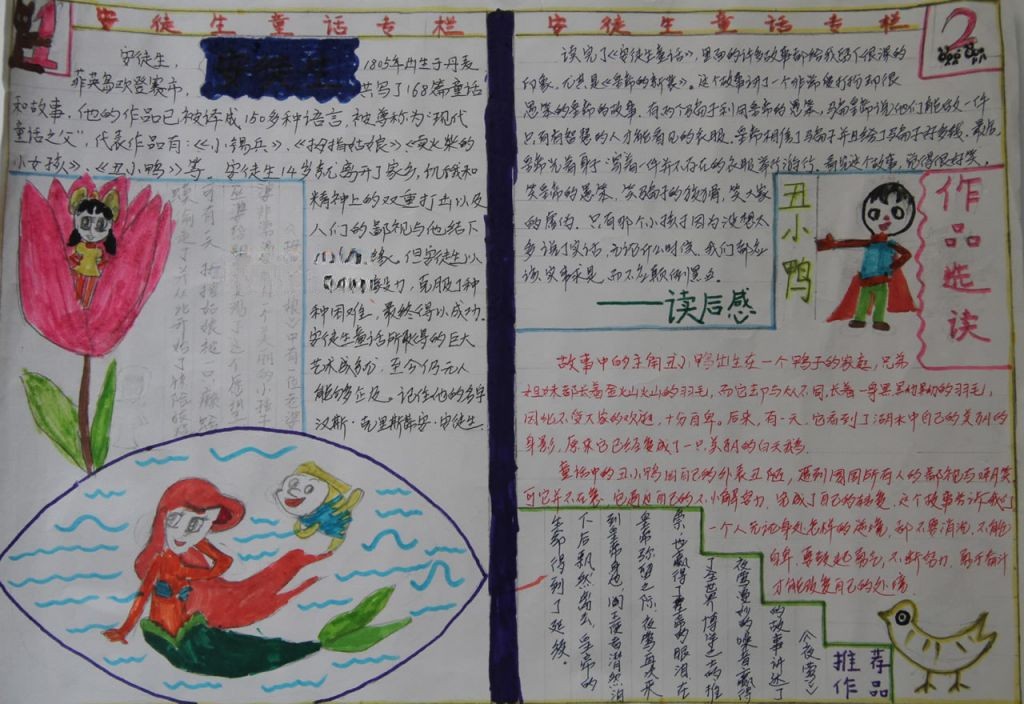 安徒生童话专栏
安徒生，
安徒生
1805年出生于丹麦
菲英岛欢登赛市，
共写了168篇童话
和故事，他的作品已被译成150多种语言，被尊称为“现代
童话之父”，代表作品有：《小锡兵》、《拇指姑娘》《卖火柴的
小女孩》、《丑小鸭》等。安徒生14岁就离开了家乡，饥饿和
精神上的双重打击以及
人们的鄙视与他结下
缘，但安徒生以
毅力，克服了种
种困难，最终得以成功。
安徒生童话所取得的巨大
艺术成就，至今仍无人
能够企及。记住他的名字
汉斯·克里斯蒂安·安徒生。
安徒生童话专栏
2
读完了《安徒生童话》，里面的许多故事都给我留下很深的
印象，尤其是《皇帝的新装》。这个故事讲了一个非常爱打扮却很
愚笨的皇帝的故事。有两个骗子利用皇帝的愚笨，骗皇帝说他们能做一件
只有有智慧的人才能看见的衣服。皇帝相信了骗子并且给了骗子好多钱，最后
皇帝光着身子“穿着”一件并不存在的衣服举行游行。看见这个故事，觉得很好笑，
笑皇帝的愚笨，笑骗子的狡猾，笑大家
的虚伪。只有那个小孩子因为没想太
多说了实话，无论什么时候，我们都应
该实事求是，而不应颠倒黑白。
——读后感
丑小鸭
作品选读
故事中的主角丑小鸭出生在一个鸭子的家庭，兄弟
姐妹都长着金灿灿的羽毛，而它却与众不同，长着一身黑黝黝的羽毛，
因此不受大家的欢迎，十分自卑。后来，有一天，它看到了湖水中自己的美丽的
身影，原来它已经变成了一只美丽的白天鹅。
童话中的丑小鸭因自己的外表丑陋，遭到周围所有人的鄙视与嘲笑
可它并不在意，它通过自己的不懈努力，完成了自己的蜕变，这个故事告诉我们
一个人无论身处怎样的逆境，都不要消沉，不能
自卑，要鼓起勇气，不断努力，勇于奋斗
才能改变自己的处境。
《夜莺》
的故事讲述了
夜莺美妙的嗓音赢得
了全世界博学之士的推
崇，也赢得了皇帝的眼泪，在
皇帝弥留之际，夜莺再次来
到皇帝身边，阎王使者潸然泪
下后飘然离去，皇帝的
生命得到了延续。
推荐
作品